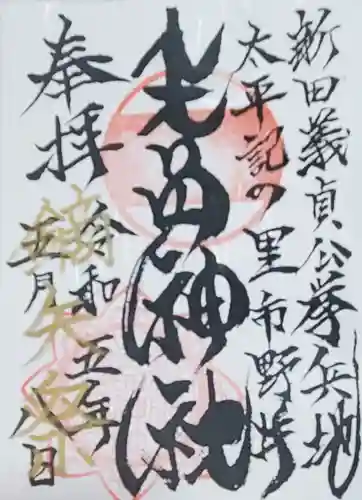 新田義貞公挙兵地
太平記の里 市野井
生品神社
奉拝
令和五年
五月八日
鏑矢祭